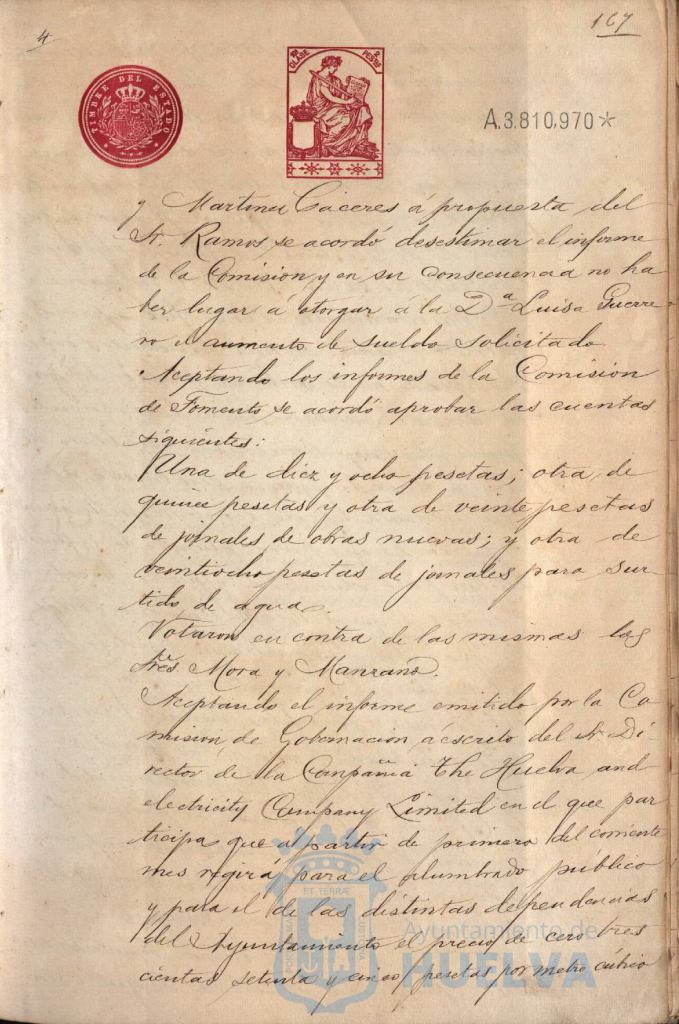 4
167
TIMBRE DEL ESTADO
10ª CLASE 2 PESTAS
A.3.810,970*
y Martinez Cáceres á propuesta del
Sr. Ramos, se acordó desestimar el informe
de la Comision y en su consecuencia no ha
ber lugar á otorgar á la Dª Luisa Guerre
ro el aumento de sueldo solicitado.
Aceptando los informes de la Comision
de Fomento, se acordó aprobar las cuentas
siguientes:
Una de diez y ocho pesetas; otra de
quince pesetas y otra de veinte pesetas
de jornales de obras nuevas; y otra de
veintiocho pesetas de jornales para sur-
tido de agua.
Votaron en contra de las mismas los
Sres. Mora y Manzano.
Aceptando el informe emitido por la Co
mision de Gobernacion á escrito del Sr. Di-
rector de la Compañia The Huelva and
electricity Company Limited en el que par
ticipa que al partir de primero del corriente
mes regirá para el alumbrado público
y para el de las distintas dependencias
del Ayuntamiento el precio de cero tres
cientas setenta y cinco pesetas por metro cúbico
Ayuntamiento de
HUELVA